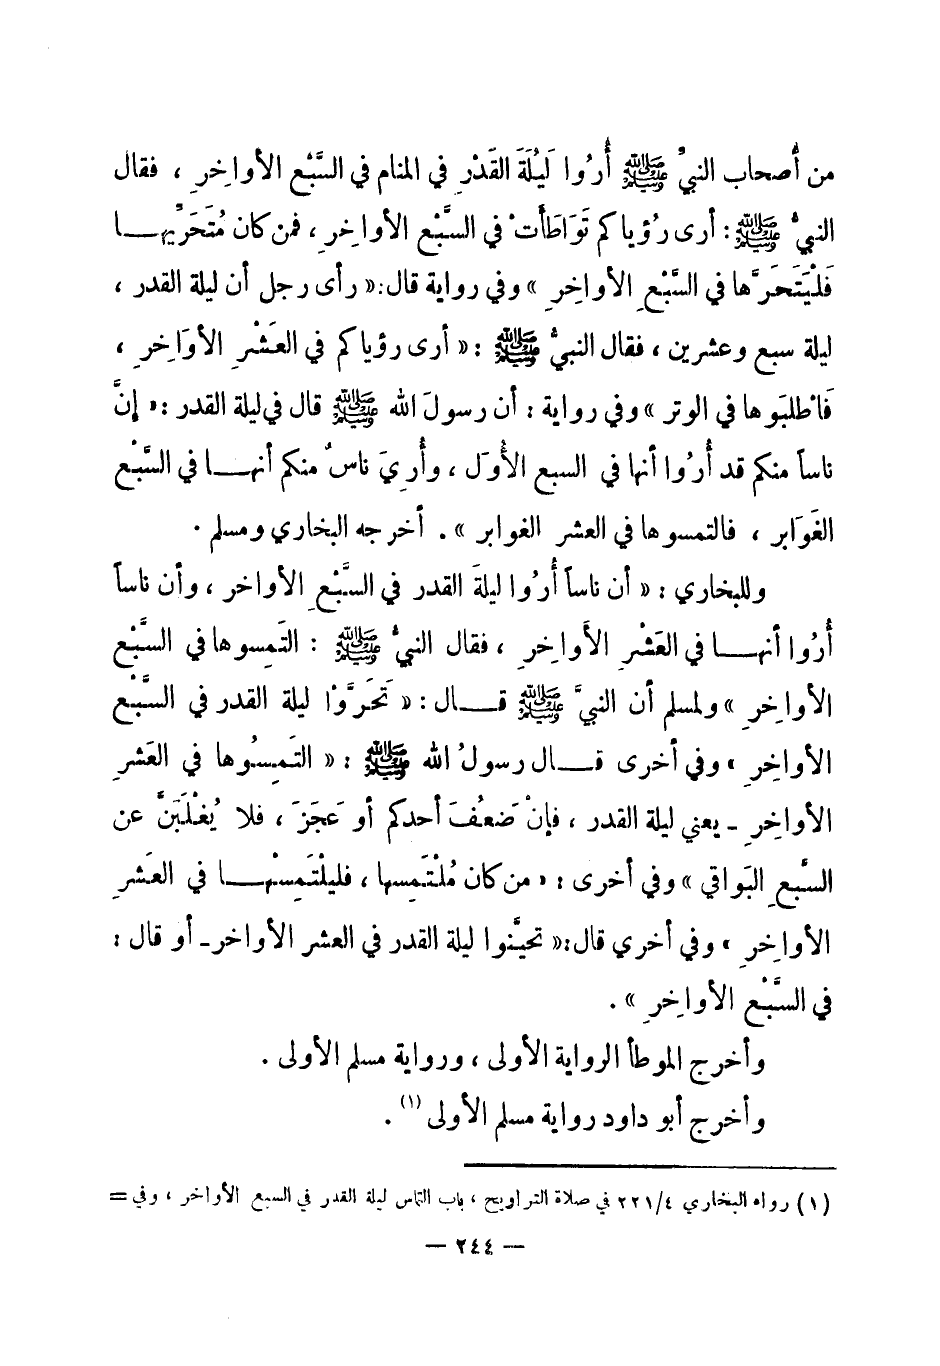 من أصحاب النبيِّ ﷺ أُرُوا لَيْلَةَ القَدْرِ في المنام في السَّبْعِ الأواخِرِ ، فقال
النبيُّ ﷺ : أرى رُؤياكم تَوَاطَأَتْ في السَّبْعِ الأواخِرِ ، فمن كان مُتَحَرِّيها
فَلْيَتَحَرَّها في السَّبْعِ الأواخِرِ » وفي رواية قال : « رأى رجل أن ليلة القدر ،
ليلة سبع وعشرين ، فقال النبيُّ ﷺ : « أرى رؤياكم في العَشْرِ الأوَاخِرِ ،
فَاطلبَوها في الوتر » وفي رواية : أن رسولَ الله ﷺ قال في ليلة القدر : « إنَّ
ناساً منكم قد أُرُوا أنها في السبع الأُوَل ، وأُرِيَ ناسٌ منكم أنها في السَّبْع
الغَوَابر ، فالتمسوها في العشر الغوابر » . أخرجه البخاري ومسلم .
وللبخاري : « أن ناساً أُرُوا ليلةَ القدر في السَّبْعِ الأواخر ، وأن ناساً
أُرُوا أنها في العَشْرِ الأَواخِرِ ، فقال النبيُّ ﷺ : التَمِسوها في السَّبْع
الأواخِرِ » ولمسلم أن النبيَّ ﷺ قال : « تَحَرَّوْا ليلة القدر في السَّبْع
الأواخِرِ » وفي أخرى قال رسولُ الله ﷺ : « التَمِسُوها في العَشرِ
الأواخِرِ ـ يعني ليلة القدر ، فإنْ ضَعُفَ أحدكم أو عَجَزَ ، فلا يُغْلَبَنَّ عن
السَّبعِ البَواقي » وفي أخرى : « من كان مُلْتَمِسها ، فليلْتَمِسْها في العَشرِ
الأواخِرِ » وفي أخري قال : « تحيَّنوا ليلة القدر في العشر الأواخر ـ أو قال :
في السَّبْعِ الأواخِرِ » .
وأخرج الموطأ الرواية الأولى ، ورواية مسلم الأولى .
وأخرج أبو داود رواية مسلم الأولى (١) .
(١) رواه البخاري ٤/٢٢١ في صلاة التراويح ، باب التماس ليلة القدر في السبع الأواخر ، وفي =
— ٢٤٤ —